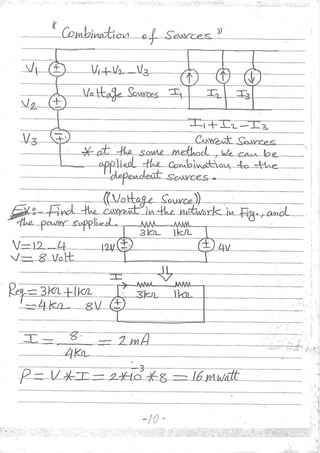 " Combination of Sources "
V1 V1+V2-V3
Voltage Sources I1 I2 I3
V2
I1+I2-I3
V3 Current Sources
* at the same method, we can be
applied the combination to the
dependent sources.
((Voltage Source))
Ex:- Find the current in the network in Fig., and
the power supplied.
3kΩ 1kΩ
V=12-4 12V 4V
V= 8 Volt
I
Req = 3kΩ+1kΩ 3kΩ 1kΩ
= 4kΩ 8V
I = 8 / 4kΩ = 2mA
P = V*I = 2*10^-3 *8 = 16 mwatt
-10-